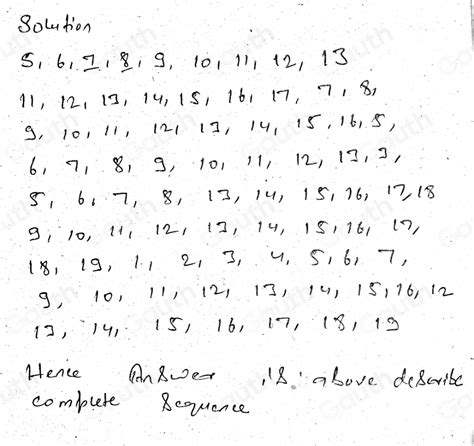 Solution
5, 6, 7, 8, 9, 10, 11, 12, 13
11, 12, 13, 14, 15, 16, 17, 7, 8,
9, 10, 11, 12, 13, 14, 15, 16, 5,
6, 7, 8, 9, 10, 11, 12, 13, 3,
5, 6, 7, 8, 13, 14, 15, 16, 17, 18
9, 10, 11, 12, 13, 14, 15, 16, 17,
18, 19, 1, 2, 3, 4, 5, 6, 7,
9, 10, 11, 12, 13, 14, 15, 16, 12
13, 14, 15, 16, 17, 18, 19
Hence Answer is above describe
complete Sequence